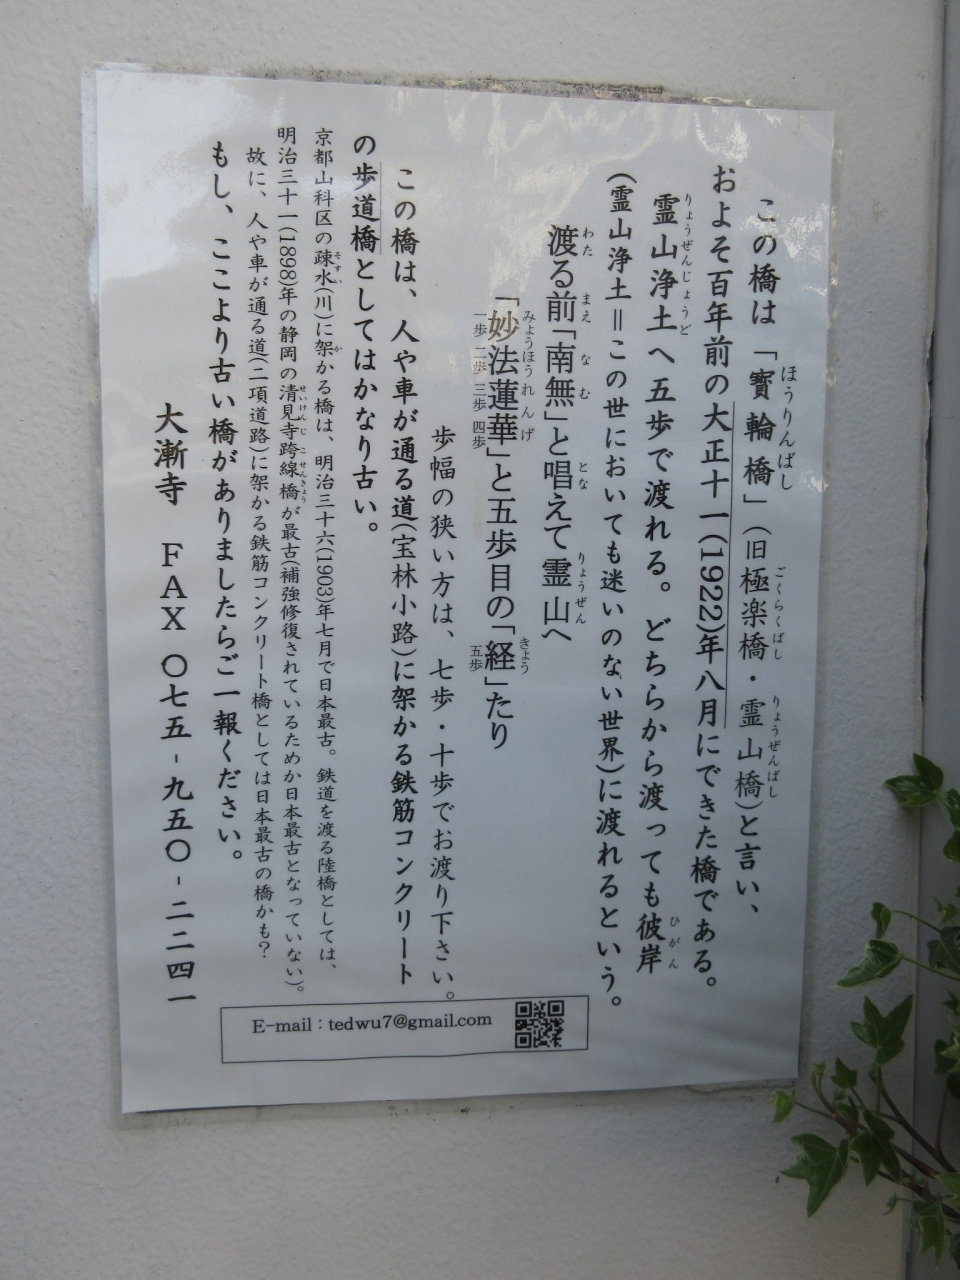 この橋は「寳輪橋」（旧極楽橋・霊山橋）と言い、
ほうりんばし
ごくらくばし
りょうぜんばし
およそ百年前の大正十一(1922)年八月にできた橋である。
霊山浄土へ五歩で渡れる。どちらから渡っても彼岸
りょうぜんじょうど
ひがん
（霊山浄土＝この世においても迷いのない世界）に渡れるという。
渡る前「南無」と唱えて霊山へ
わた
まえ
なむ
とな
りょうぜん
「妙法蓮華」と五歩目の「経」たり
みょうほうれんげ
きょう
一歩 二歩 三歩 四歩
五歩
歩幅の狭い方は、七歩・十歩でお渡り下さい。
この橋は、人や車が通る道(宝林小路)に架かる鉄筋コンクリート
の歩道橋としてはかなり古い。
京都山科区の疎水(川)に架かる橋は、明治三十六(1903)年七月で日本最古。鉄道を渡る陸橋としては、
そすい
か
明治三十一(1898)年の静岡の清見寺跨線橋が最古(補強修復されているためか日本最古となっていない)。
せいけんじこせんきょう
故に、人や車が通る道(二項道路)に架かる鉄筋コンクリート橋としては日本最古の橋かも？
もし、ここより古い橋がありましたらご一報ください。
大漸寺 ＦＡＸ 〇七五-九五〇-二二四一
E-mail：tedwu7@gmail.com